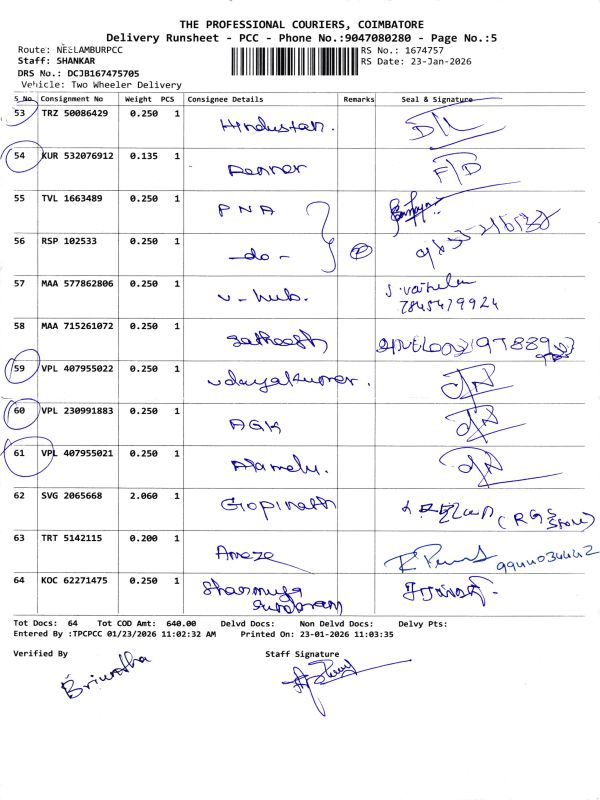 THE PROFESSIONAL COURIERS, COIMBATORE
Delivery Runsheet - PCC - Phone No.:9047080280 - Page No.:5
Route: NEELAMBURPCC
RS No.: 1674757
Staff: SHANKAR
RS Date: 23-Jan-2026
DRS No.: DCJB167475705
Vehicle: Two Wheeler Delivery
S_No. Consignment No Weight PCS Consignee Details Remarks Seal & Signature
53 TRZ 50086429 0.250 1 Hindustan.
54 KUR 532076912 0.135 1 F/D
55 TVL 1663489 0.250 1 PNA
56 RSP 102533 0.250 1 -do- 2
57 MAA 577862806 0.250 1 V-hub. 7845479924
58 MAA 715261072 0.250 1 Satheesh
59 VPL 407955022 0.250 1 Udayakumar.
60 VPL 230991883 0.250 1 AGK
61 VPL 407955021 0.250 1 Alamelu.
62 SVG 2065668 2.060 1 Gopinath (RGS Store)
63 TRT 5142115 0.200 1 9944034442
64 KOC 62271475 0.250 1 Shanmuga Sundaram
Tot Docs: 64 Tot COD Amt: 640.00 Delvd Docs: Non Delvd Docs: Delvy Pts:
Entered By :TPCPCC 01/23/2026 11:02:32 AM Printed On: 23-01-2026 11:03:35
Verified By Staff Signature